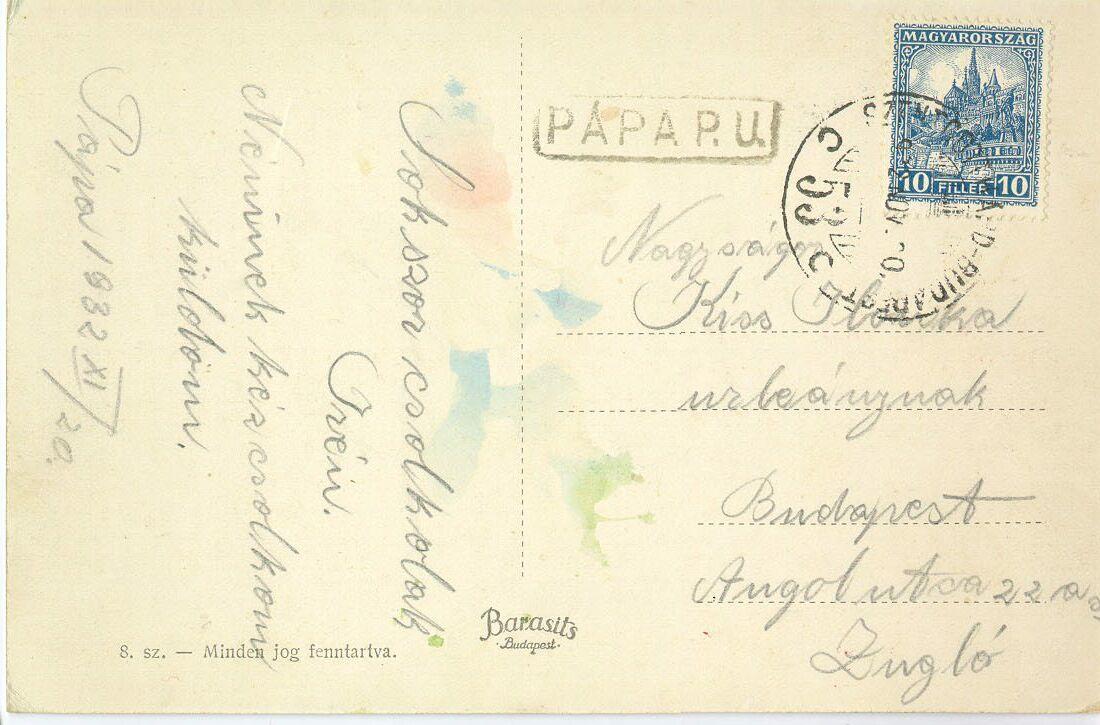 Sokszor csolkolak
Irén.
Néninek kézcsolkom
küldöm.
Pápa 1932 XI/20.
8. sz. — Minden jog fenntartva.
Barasits
·Budapest·
PÁPA P.U.
MAGYARORSZÁG
10 FILLÉR 10
53
Nagyságos
Kiss Ilonka
urleánynak
Budapest
Angol utca 22 a
Zugló